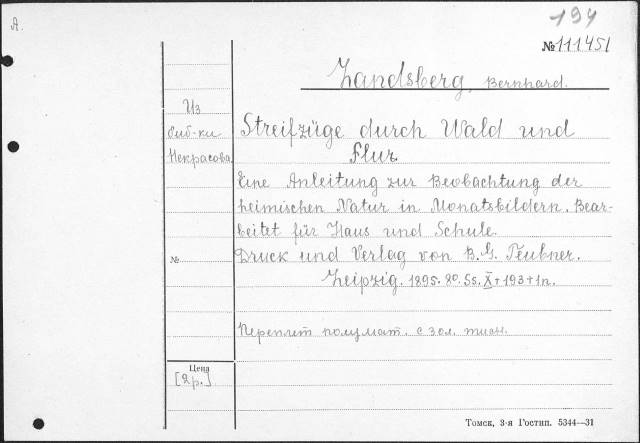 A.
194
№ 111451
Landsberg, Bernhard.
Из
биб-ки
Некрасова
Streifzüge durch Wald und
Flur.
Eine Anleitung zur Beobachtung der
heimischen Natur in Monatsbildern. Bear-
beitet für Haus und Schule.
№
Druck und Verlag von B. G. Teubner.
Leipzig. 1895. 80. Ss. X + 193 + 1n.
Переплет полумат. с зол. тисн.
Цена
[2 р.]
Томск, 3-я Гостип. 5344—31